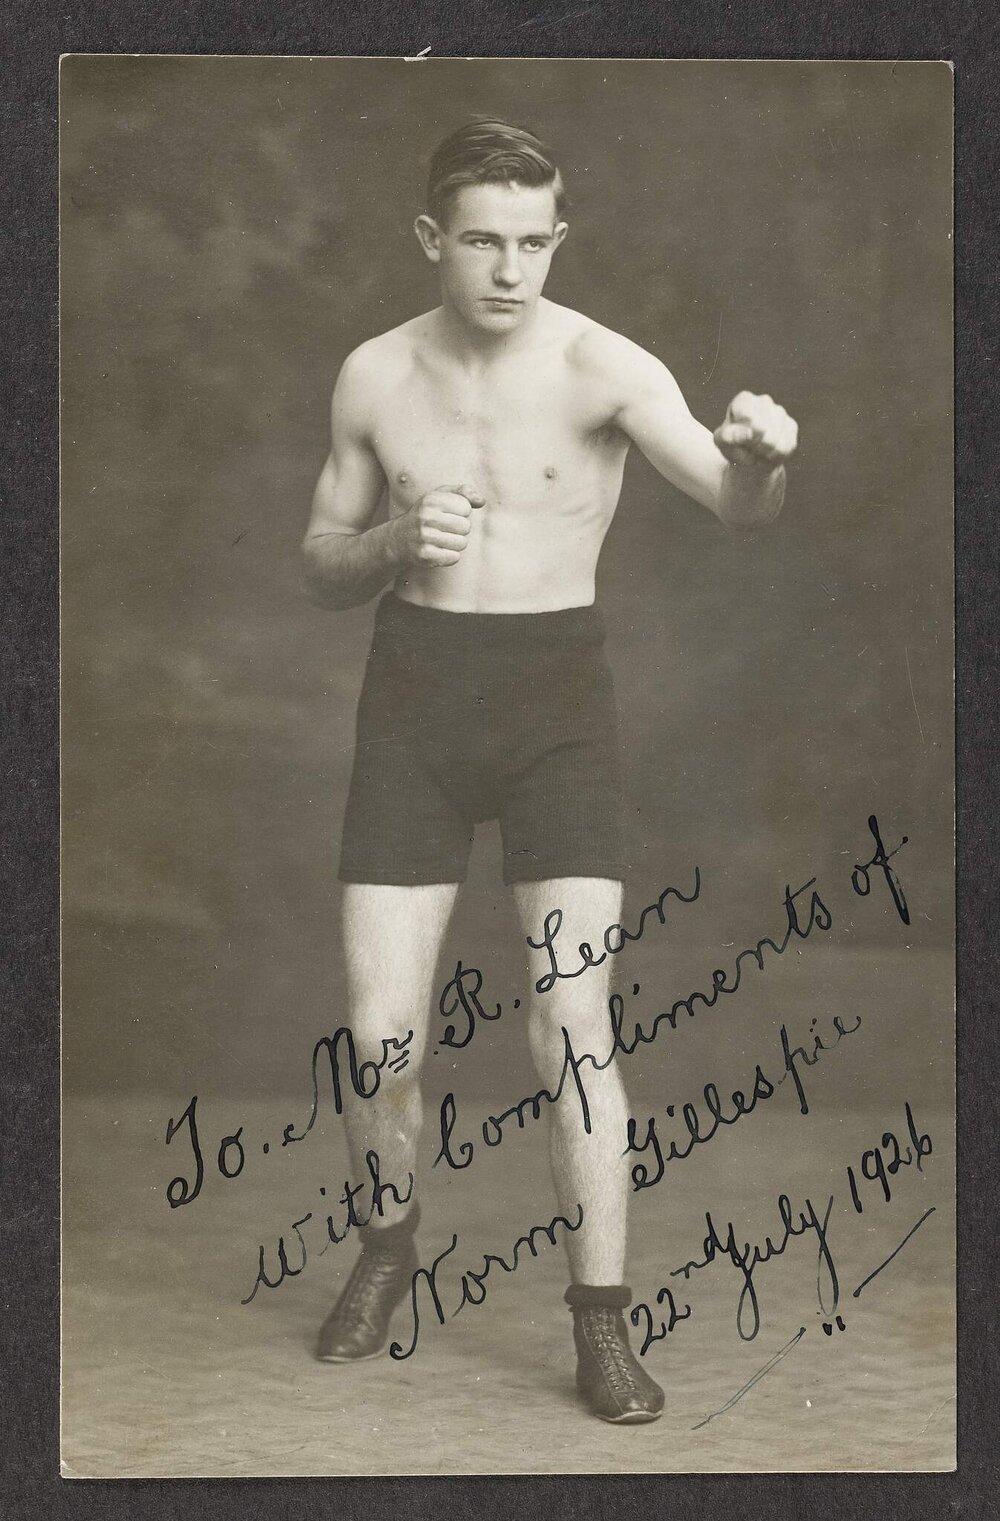 To. Mr. R. Lean
With Compliments of
Norm Gillespie
22nd July 1926